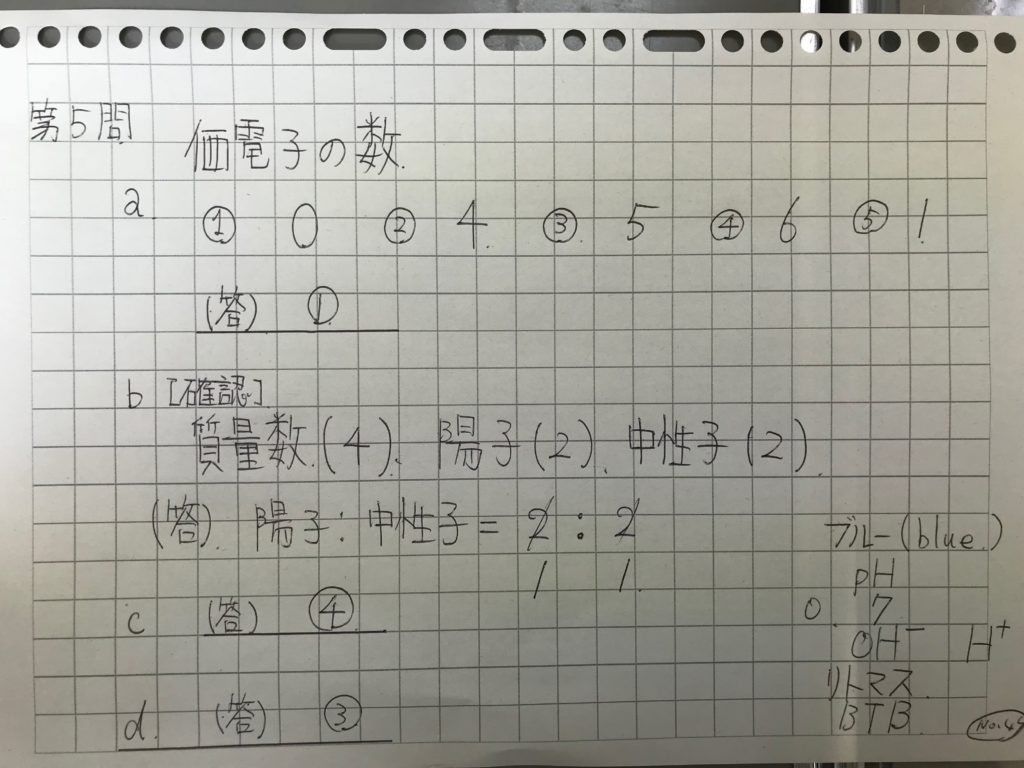 第5問
価電子の数.
a. ① 0 ② 4. ③ 5 ④ 6 ⑤ 1
(答) ①
b [確認]
質量数.(4). 陽子(2). 中性子(2).
(答). 陽子:中性子= 2 : 2
1 1.
c (答) ④
d. (答) ③
ブルー(blue.)
pH
0 7
OH⁻ H⁺
リトマス.
BTB